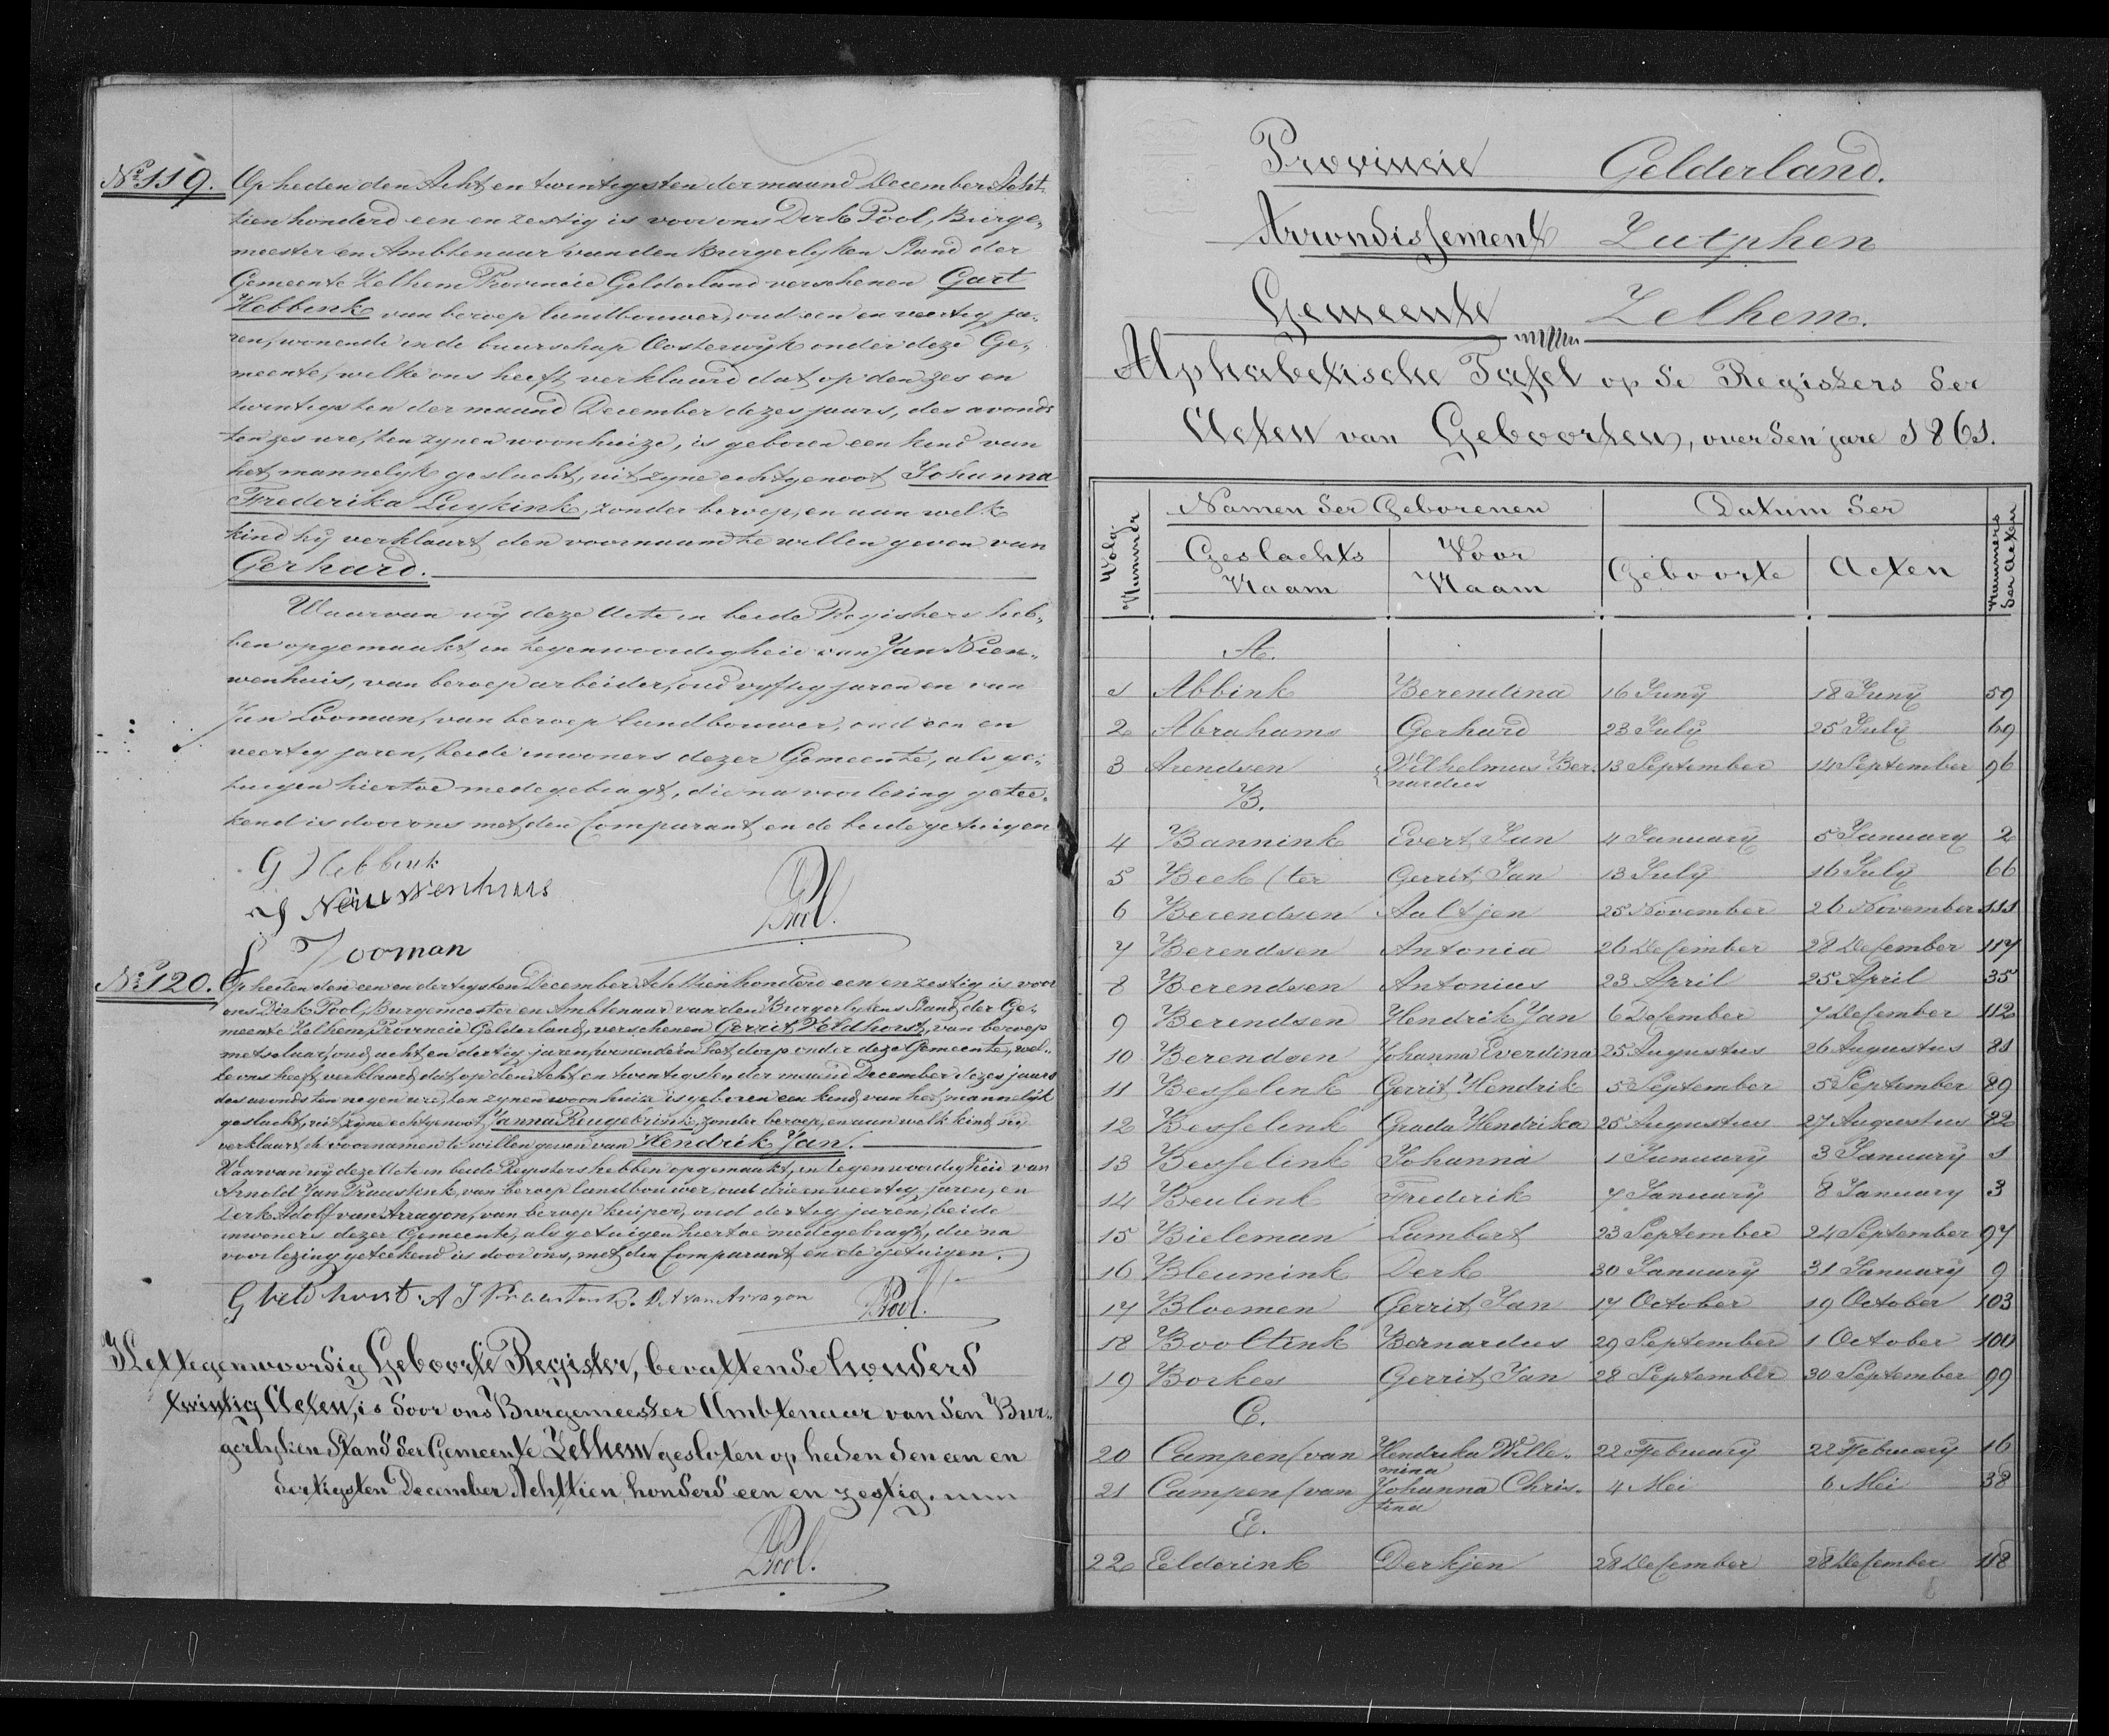 No 119. Op heden den Acht en twintigsten der maand December Acht
tien honderd een en zestig is voor ons Derk Pool, Burge„
meester en Ambtenaar van den Burgerlyken Stand der
Gemeente Zelhem Provincie Gelderland verschenen Gart
Hebbink van beroep landbouwer, oud een en veertig ja„
ren, wonende in de buurschap Oosterwyk onder deze Ge„
meente, welke ons heeft verklaard dat op den zes en
twintigsten der maand December dezes jaars, des avonds
ten zes ure, ten zynen woonhuize, is geboren een kind van
het mannelyk geslacht, uit zyne echtgenoot Johanna
Frederika Luykink, zonder beroep, en aan welk
kind hy verklaart den voornaam te willen geven van
Gerhard.
Waarvan wy deze Acte in beide Registers heb„
ben opgemaakt in tegenwoordigheid van Jan Nieu„
wenhuis, van beroep arbeider, oud vyftig jaren en van
Jan Looman, van beroep landbouwer, oud een en
veertig jaren, beide inwoners dezer Gemeente, als ge„
tuigen hiertoe medegebragt, die na voorlezing getee„
kend is door ons met den Comparant en de beide getuigen
G Hebbink
Nieuwenhuis
Pool.
J Looman
No 120. Op heden den een en dertigsten December Achttienhonderd een en zestig is voor
ons Dirk Pool, Burgemeester en Ambtenaar van den Burgerlyken Stand der Ge„
meente Zelhem, Provincie Gelderland, verschenen Gerrit Veldhorst, van beroep
metselaar, oud acht en dertig jaren, wonende in het dorp onder deze Gemeente, wel„
ke ons heeft verklaard, dat op den Acht en twintigsten der maand December dezes jaars
des avonds ten negen ure, ten zynen woonhuize is geboren een kind, van het mannelijk
geslacht, uit zyne echtgenoot Janna Reugebrink, zonder beroep, en aan welk kind hy
verklaart de voornamen te willen geven van Hendrik Jan.
Waarvan wy deze Acte in beide Registers hebben opgemaakt, in tegenwoordigheid van
Arnold Jan, van beroep landbouwer, oud drie en veertig jaren, en
Derk Adolf van Arragon, van beroep kuiper, oud dertig jaren, beide
inwoners dezer Gemeente, als getuigen hiertoe medegebragt, die na
voorlezing geteekend is door ons, met den Comparant en de getuigen.
G Veldhorst. A J D A van Arragon Pool.
Het tegenwoordig Geboorte Register, bevattende honderd
twintig Acten, is door ons Burgemeester Ambtenaar van den Bur„
gerlyken Stand der Gemeente Zelhem gesloten op heden den een en
dertigsten December Achttien honderd een en zestig.
Pool.
Provincie Gelderland.
Arrondissement Zutphen
Gemeente Zelhem.
Alphabetische Tafel op de Registers der
Acten van Geboorten, over den jare 1861.
Volg Nummer Namen der Geborenen Datum der Nummers der Acten
Geslachts Naam Voor Naam Geboorte Acten
A.
1 Abbink Berendina 16 Juny 18 Juny 59
2 Abrahams Gerhard 23 July 25 July 69
3 Arendsen Wilhelmus Ber„ 13 September 14 September 96
nardus
B.
4 Bannink Evert Jan 4 January 5 January 2
5 Beek (ter Gerrit Jan 13 July 16 July 66
6 Berendsen Aaltjen 25 November 26 November 111
7 Berendsen Antonia 26 December 28 December 117
8 Berendsen Antonius 23 April 25 April 35
9 Berendsen Hendrik Jan 6 December 7 December 112
10 Berendsen Johanna Everdina 25 Augustus 26 Augustus 81
11 Besselink Gerrit Hendrik 5 September 5 September 89
12 Besselink Grada Hendrika 25 Augustus 27 Augustus 82
13 Besselink Johanna 1 January 3 January 1
14 Beulink Frederik 7 January 8 January 3
15 Bieleman Lambert 23 September 24 September 97
16 Bleumink Derk 30 January 31 January 9
17 Bloemen Gerrit Jan 17 October 19 October 103
18 Booltink Bernardus 29 September 1 October 100
19 Borkes Gerrit Jan 28 September 30 September 99
C.
20 Campen (van Hendrika Wille„ 22 February 22 February 16
mina
21 Campen (van Johanna Chris„ 4 Mei 6 Mei 38
tina
E.
22 Eelderink Derkjen 28 December 28 December 118